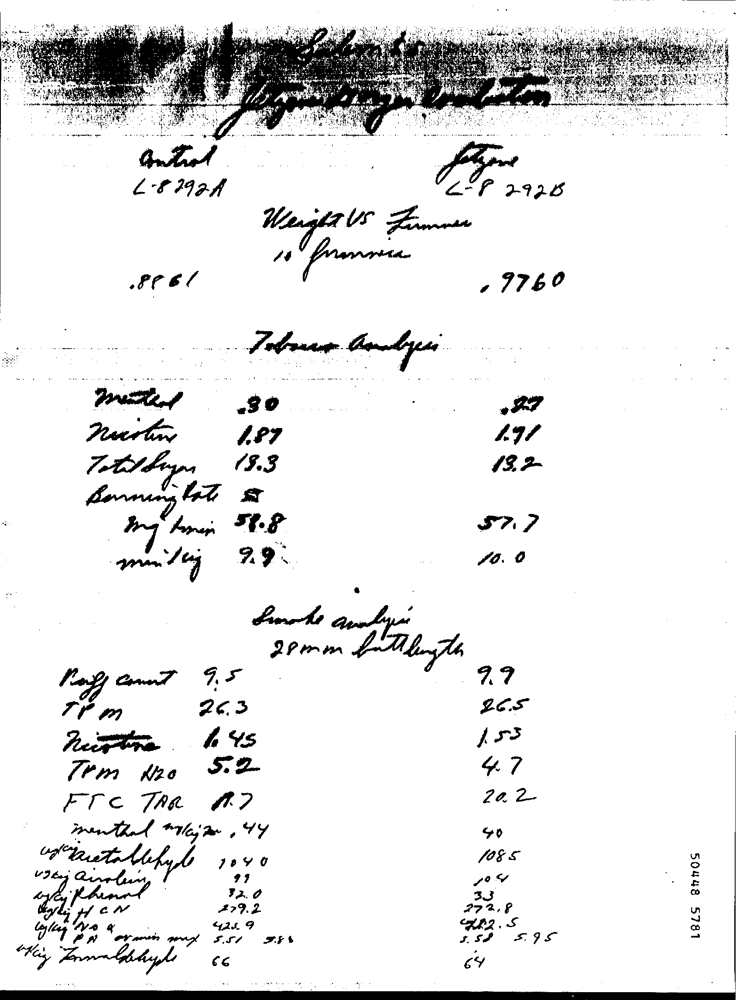 Salem 85
Jetzone Dryer Evaluation
Control Jetzone
L-8292A L-8292B
Weight VS
10
.8861 .9760
Tobacco Analysis
Menthol .30 .27
Nicotine 1.87 1.91
Total Sugar 13.2
Burning Rate
mg / min 58.8 57.7
min / cig 9.9 10.0
Smoke analysis
28mm butt length
Puff count 9.5 9.9
TPM 26.3 26.5
Nicotine 1.45 1.53
TPM H2O 5.2 4.7
FTC TAR 20.2
menthol mg/cig .44 40
ug/cig acetaldehyde 1040 1085
ug/cig acrolein 99 104
ug/cig Phenol 32.0 33
ug/cig HCN 279.2 272.8
ug/cig NOx 425.9
PA min max 5.51 5.58 5.95
ug/cig Formaldehyde 66 64
50448 5781